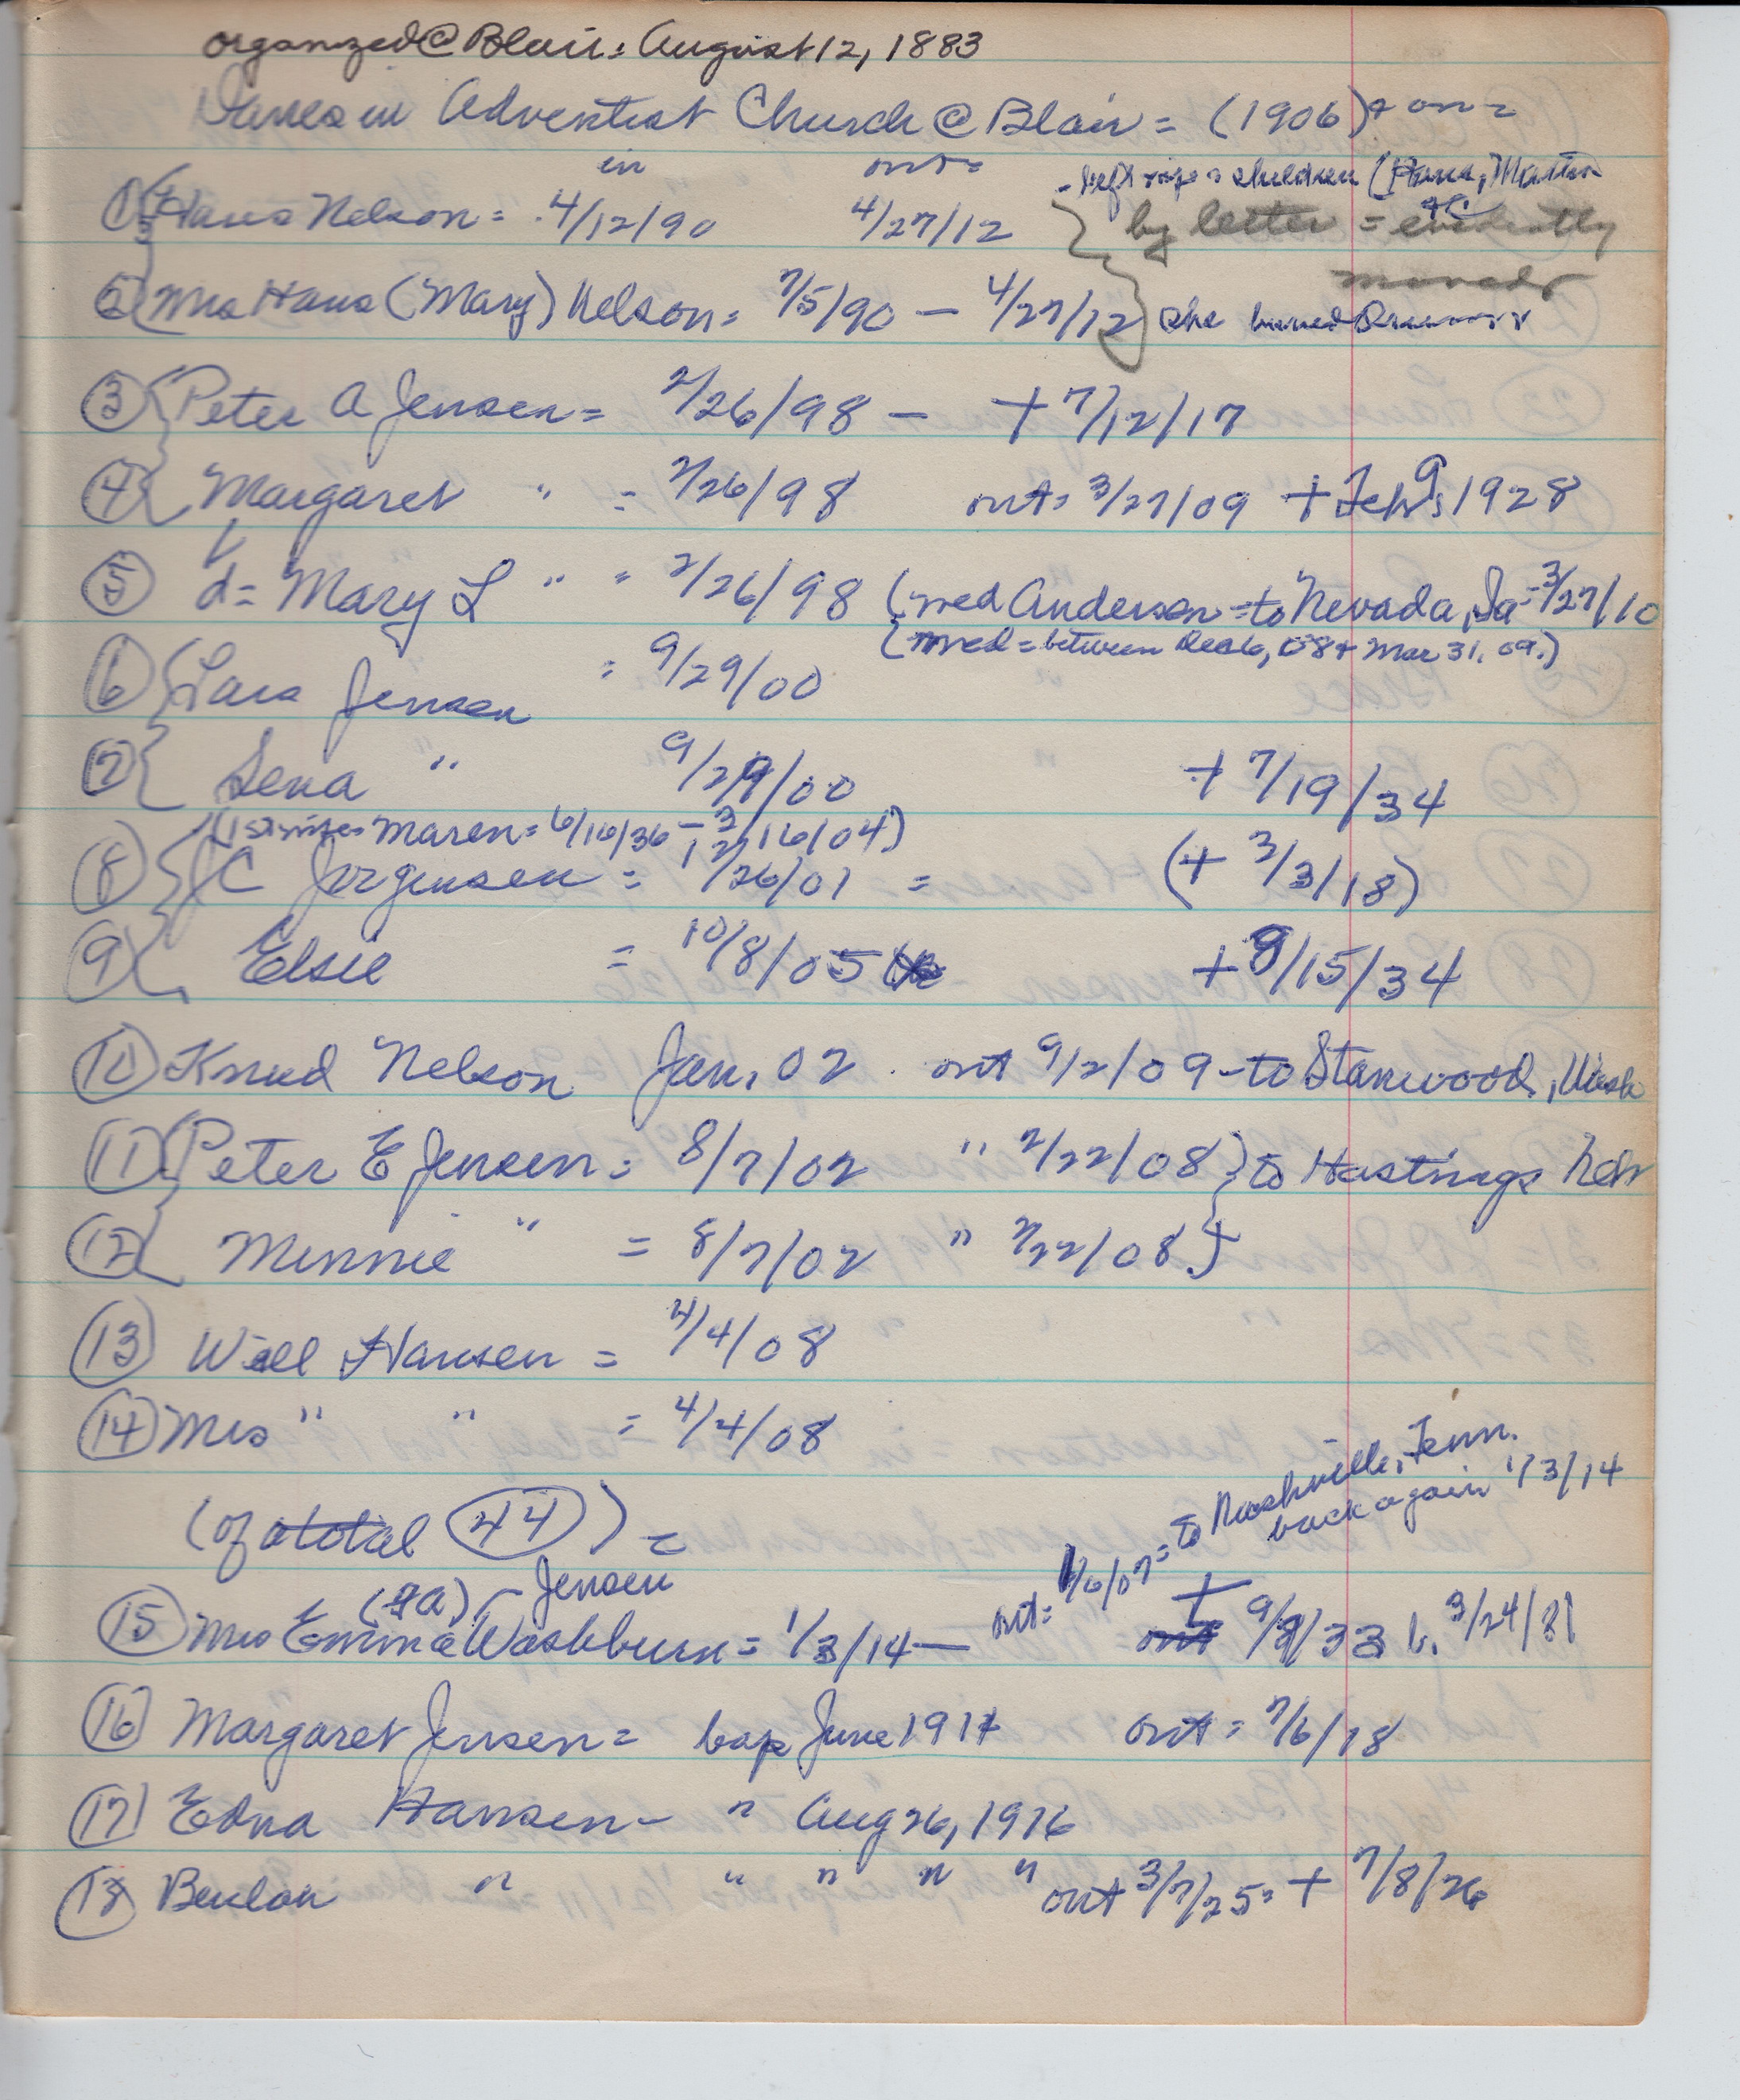 organized @ Blair: August 12, 1883
Danes in Adventist Church @ Blair = (1906) + on =
in out =
- left wife & children (Hans, Martin
+ C
① Hans Nelson = 4/12/90 4/27/12 by letter = evidently
moved
② Mrs Hans (Mary) Nelson = 7/5/90 — 4/27/12 she
③ Peter A Jensen = 2/26/98 — + 7/12/17
④ Margaret " = 2/26/98 out = 3/27/09 + Feb 9, 1928
⑤ d = Mary L " = 2/26/98 (med Anderson = to Nevada, Ia = 3/27/10
(med = between Dec 6, 08 + Mar 31, 09.)
⑥ Lars Jensen = 9/29/00
⑦ Sena " 9/29/00 + 7/19/34
(1st wife = Maren = 6/16/36 – 3/16/04)
⑧ J C Jorgensen = 12/26/01 = (+ 3/3/18)
⑨ Elsie = 10/8/05 + 9/15/34
⑩ Knud Nelson Jan, 02 out 9/2/09 - to Stanwood, Wash
⑪ Peter E Jensen = 8/7/02 " 2/22/08 } to Hastings Nebr
⑫ Minnie " = 8/7/02 " 2/22/08 }
⑬ Will Hansen = 4/4/08
⑭ Mrs " " = 4/4/08
(of a total 44) =
to Nashville, Tenn.
back again 1/3/14
(A) - Jensen
⑮ Mrs Emma Washburn = 1/3/14 — out = 1/6/07 = + out 9/9/33 b. 3/24/81
⑯ Margaret Jensen = bap June 1914 out = 7/6/18
⑰ Edna Hansen - " Aug 26, 1916
⑱ Beulah " " " " " out 3/7/25 = + 7/8/26